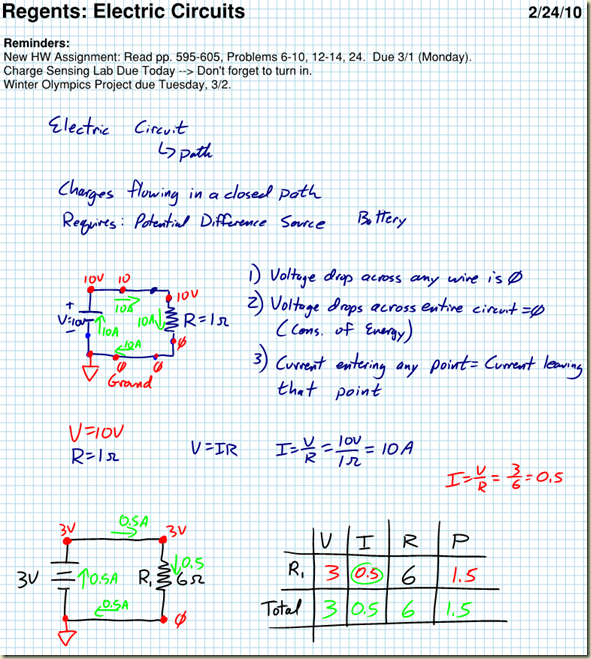 Regents: Electric Circuits 2/24/10
Reminders:
New HW Assignment: Read pp. 595-605, Problems 6-10, 12-14, 24. Due 3/1 (Monday).
Charge Sensing Lab Due Today --> Don't forget to turn in.
Winter Olympics Project due Tuesday, 3/2.
Electric Circuit
↳ path
Charges flowing in a closed path
Requires: Potential Difference Source Battery
1) Voltage drop across any wire is ∅
2) Voltage drops across entire circuit = ∅
(Cons. of Energy)
3) Current entering any point = Current leaving
that point
10V 10
10V
+
10A
V=10V
10A
10A
R=1Ω
-
10A
∅
∅ ∅
Ground
V=10V
R=1Ω
V=IR I=V/R=10V/1Ω=10A
I=V/R=3/6=0.5
0.5A
3V 3V
3V
0.5A
R₁
0.5
6Ω
0.5A
∅
V I R P
R₁ 3 0.5 6 1.5
Total 3 0.5 6 1.5